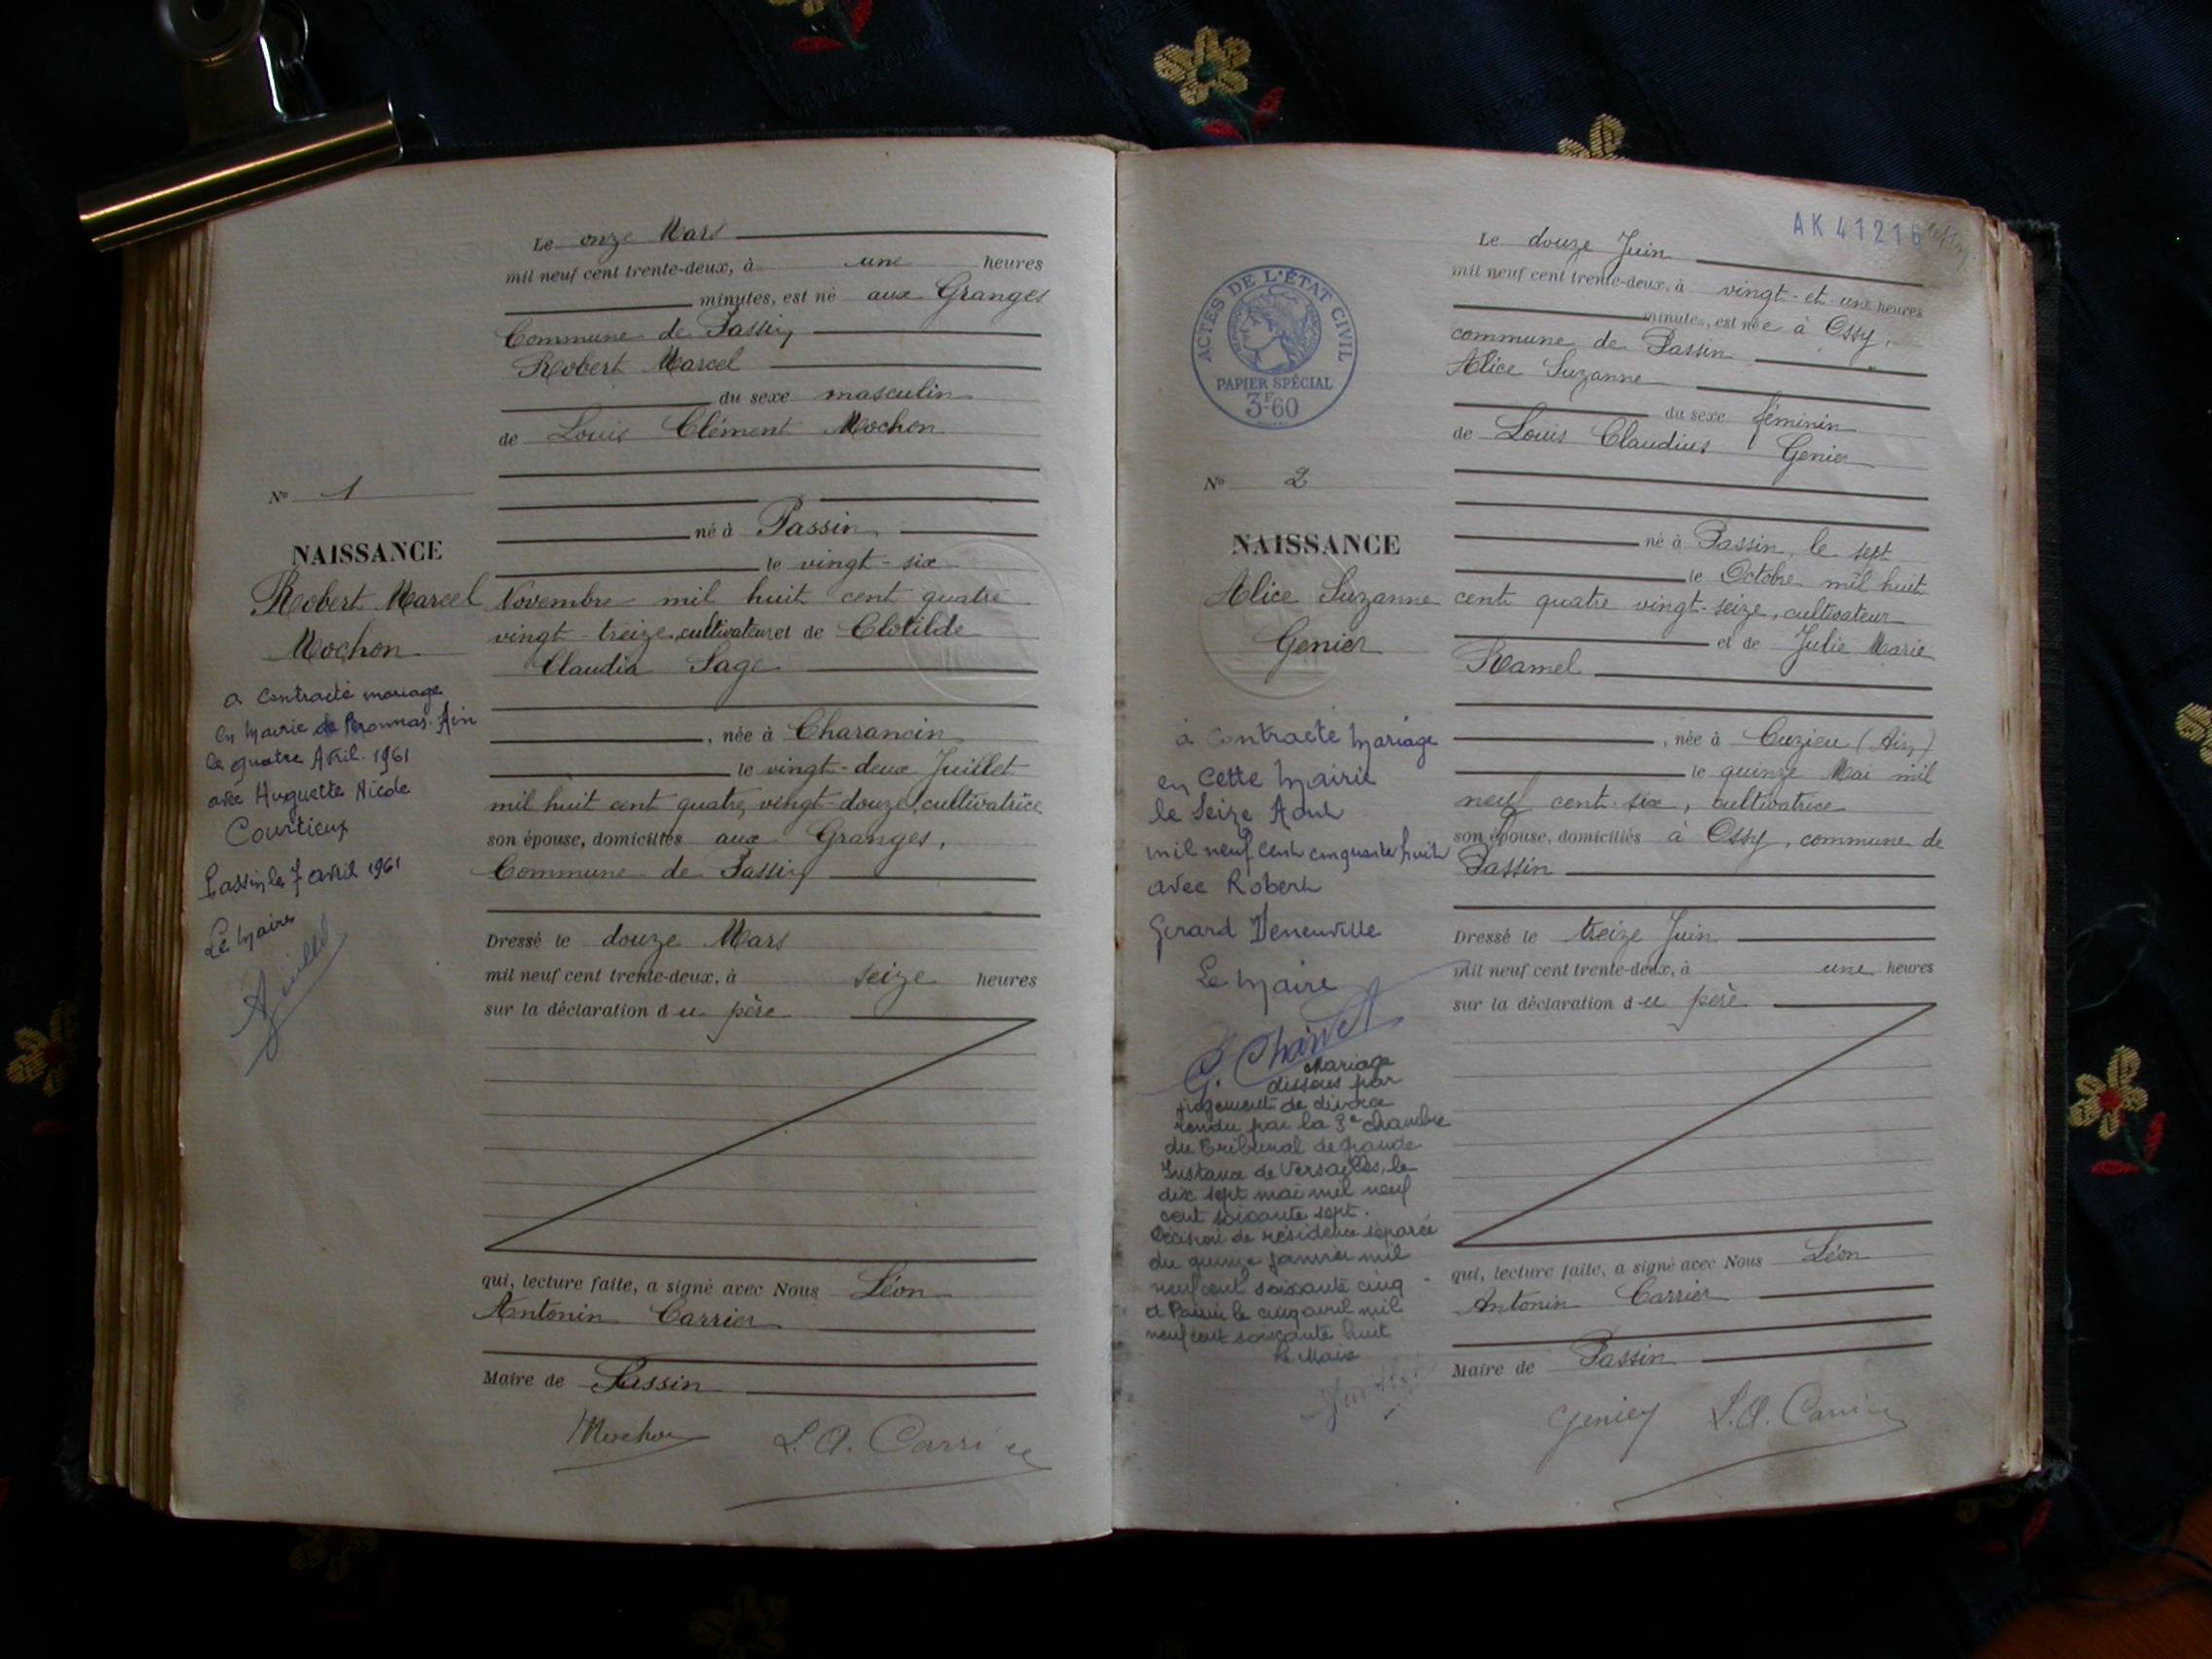 Le onze Mars
mil neuf cent trente-deux, à une heures
minutes, est né aux Granges
Commune de Passin
Robert Marcel
du sexe masculin
de Louis Clément Mochon
né à Passin
le vingt-six
Novembre mil huit cent quatre
vingt-treize, cultivateur et de Clotilde
Claudia Sage
, née à Charancin
le vingt-deux Juillet
mil huit cent quatre vingt-douze, cultivatrice
son épouse, domiciliés aux Granges,
Commune de Passin
Dressé le douze Mars
mil neuf cent trente-deux, à seize heures
sur la déclaration du père
qui, lecture faite, a signé avec Nous Léon
Antonin Carrier
Maire de Passin
Mochon L. A. Carrier
No 1
NAISSANCE
Robert Marcel
Mochon
a contracté mariage
en Mairie de Péronnas-Ain
le quatre Avril 1961
avec Huguette Nicole
Courtieux
Passin le 7 avril 1961
Le Maire
AK 41216
Le douze Juin
mil neuf cent trente-deux, à vingt-et-une heures
minutes, est née à Ossy,
commune de Passin
Alice Suzanne
du sexe féminin
de Louis Claudius Genier
né à Passin, le sept
le Octobre mil huit
cent quatre vingt-seize, cultivateur
et de Julie Marie
Ramel
, née à Cuzieu (Ain)
le quinze Mai mil
neuf cent six, cultivatrice
son épouse, domiciliés à Ossy, commune de
Passin
Dressé le treize Juin
mil neuf cent trente-deux, à une heures
sur la déclaration du père
qui, lecture faite, a signé avec Nous Léon
Antonin Carrier
Maire de Passin
L. A. Carrier
ACTES DE L'ÉTAT CIVIL
PAPIER SPÉCIAL
3F60
No 2
NAISSANCE
Alice Suzanne
Genier
à contracté mariage
en cette Mairie
le Seize Aout
mil neuf cent cinquante huit
avec Robert
Gérard Deneuville
Le Maire
G. Charvet
Mariage
dissous par
jugement de divorce
rendu par la 3e chambre
du Tribunal de Grande
Instance de Versailles, le
dix sept mai mil neuf
cent soixante sept.
Décision de résidence séparée
du quinze janvier mil
neuf cent soixante cinq
A Passin le cinq avril mil
neuf cent soixante huit
Le Maire